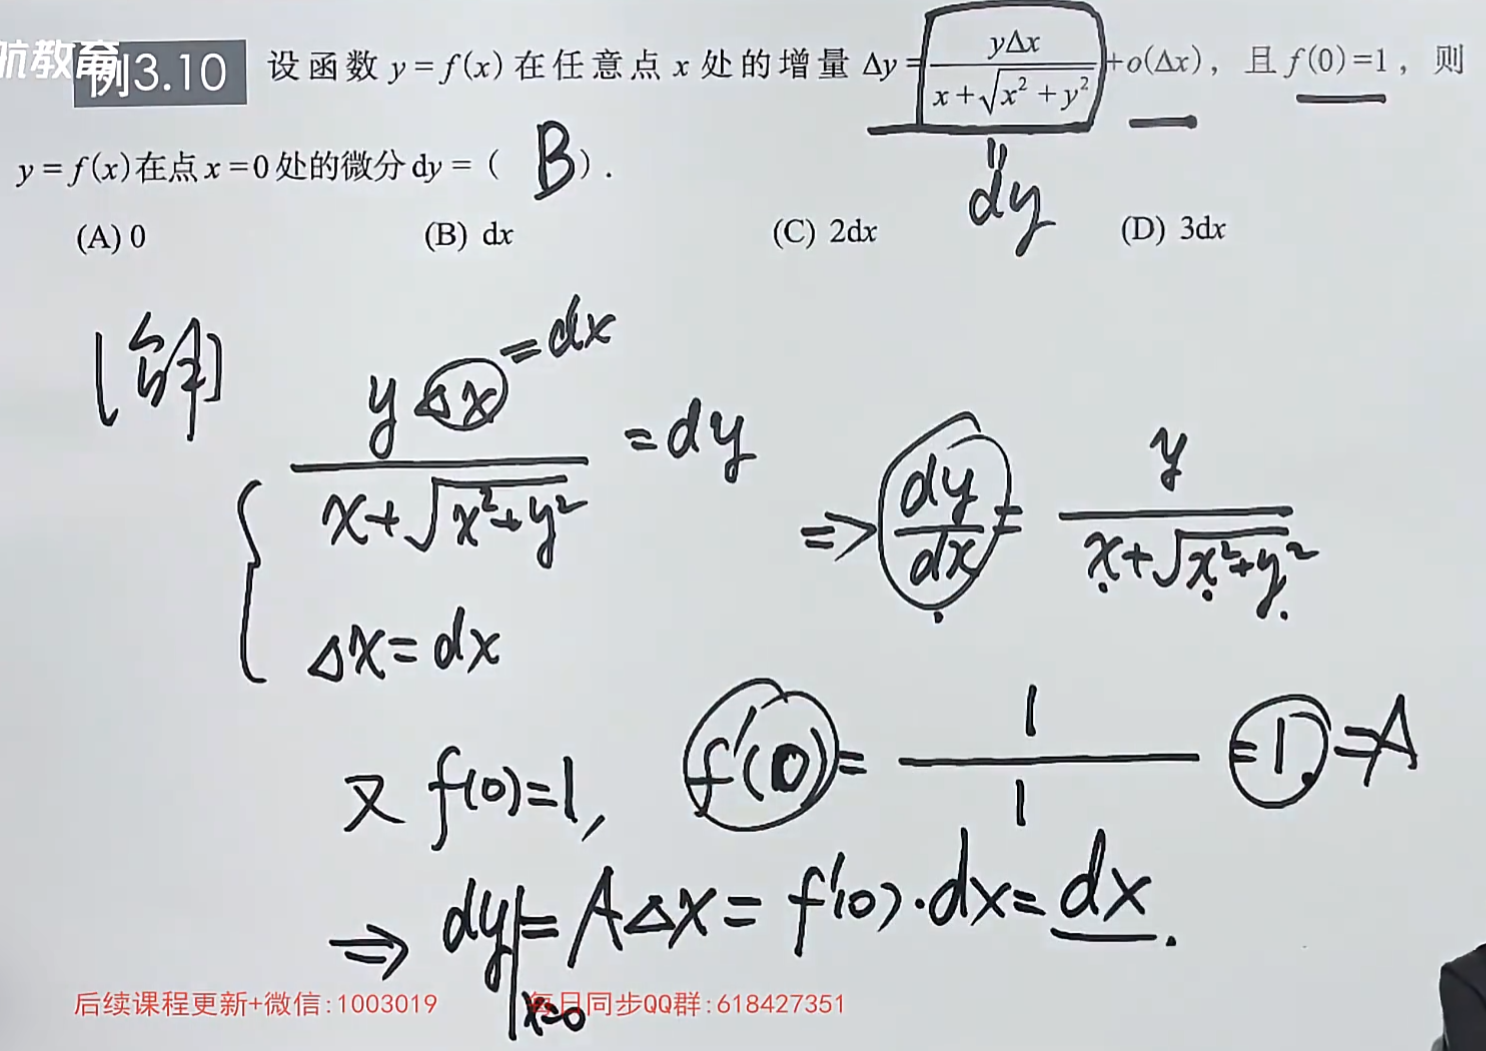 航教育
例3.10 设函数 y=f(x) 在任意点 x 处的增量 Δy= yΔx/(x+√(x²+y²)) +o(Δx), 且 f(0)=1, 则
y=f(x)在点x=0处的微分dy=( B ).
=dy
(A) 0 (B) dx (C) 2dx (D) 3dx
[解]
{ yΔx/(x+√(x²+y²)) =dy
Δx=dx
=dx
⇒ dy/dx = y/(x+√(x²+y²))
又 f(0)=1, f'(0)= 1/1 =1. =A
⇒ dy|x=0 = AΔx = f'(0)·dx = dx.
后续课程更新+微信:1003019 每日同步QQ群:618427351